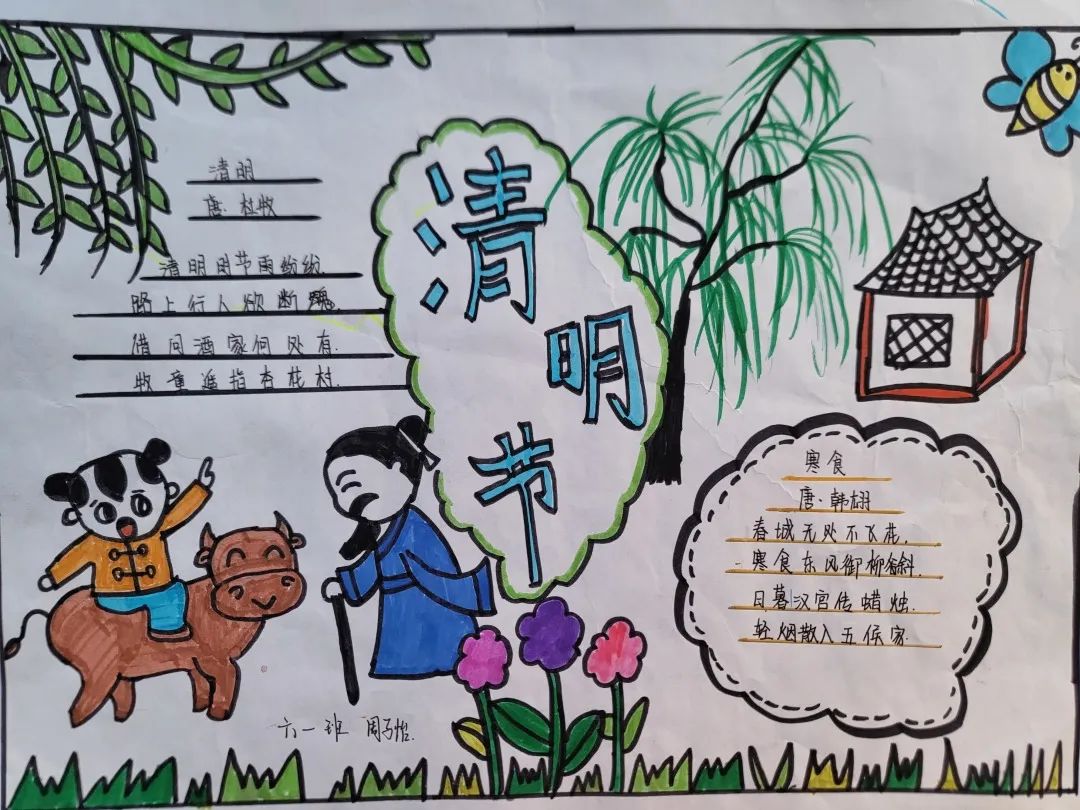 清明节
清明
唐·杜牧
清明时节雨纷纷.
路上行人欲断魂.
借问酒家何处有.
牧童遥指杏花村.
寒食
唐·韩翃
春城无处不飞花.
寒食东风御柳斜.
日暮汉宫传蜡烛.
轻烟散入五侯家.
六一班 周子怡.